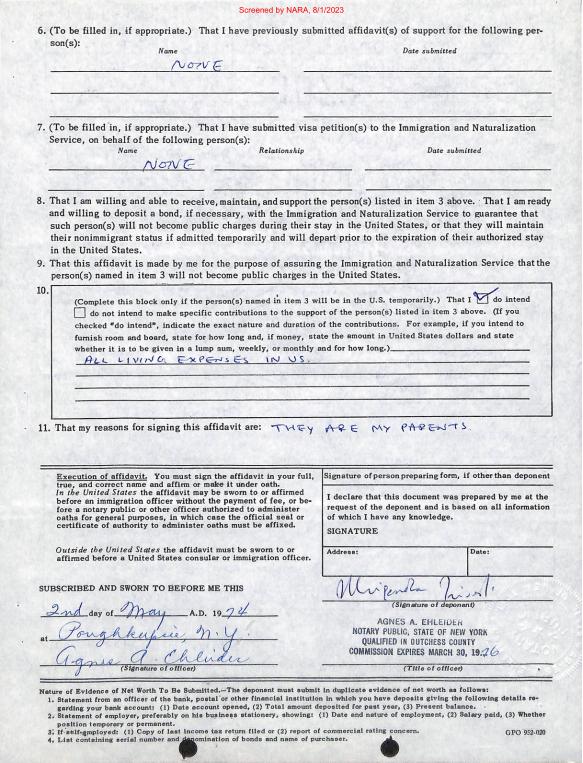 Screened by NARA, 8/1/2023
6. (To be filled in, if appropriate.) That I have previously submitted affidavit(s) of support for the following per-
son(s):
Name Date submitted
NONE
7. (To be filled in, if appropriate.) That I have submitted visa petition(s) to the Immigration and Naturalization
Service, on behalf of the following person(s):
Name Relationship Date submitted
NONE
8. That I am willing and able to receive, maintain, and support the person(s) listed in item 3 above. That I am ready
and willing to deposit a bond, if necessary, with the Immigration and Naturalization Service to guarantee that
such person(s) will not become public charges during their stay in the United States, or that they will maintain
their nonimmigrant status if admitted temporarily and will depart prior to the expiration of their authorized stay
in the United States.
9. That this affidavit is made by me for the purpose of assuring the Immigration and Naturalization Service that the
person(s) named in item 3 will not become public charges in the United States.
10.
(Complete this block only if the person(s) named in item 3 will be in the U.S. temporarily.) That I do intend
do not intend to make specific contributions to the support of the person(s) listed in item 3 above. (If you
checked "do intend", indicate the exact nature and duration of the contributions. For example, if you intend to
furnish room and board, state for how long and, if money, state the amount in United States dollars and state
whether it is to be given in a lump sum, weekly, or monthly and for how long.)
ALL LIVING EXPENSES IN US.
11. That my reasons for signing this affidavit are: THEY ARE MY PARENTS
Execution of affidavit. You must sign the affidavit in your full,
true, and correct name and affirm or make it under oath.
In the United States the affidavit may be sworn to or affirmed
before an immigration officer without the payment of fee, or be-
fore a notary public or other officer authorized to administer
oaths for general purposes, in which case the official seal or
certificate of authority to administer oaths must be affixed.
Outside the United States the affidavit must be sworn to or
affirmed before a United States consular or immigration officer.
Signature of person preparing form, if other than deponent
I declare that this document was prepared by me at the
request of the deponent and is based on all information
of which I have any knowledge.
SIGNATURE
Address: Date:
SUBSCRIBED AND SWORN TO BEFORE ME THIS
2nd day of May A.D. 1974
at Poughkeepsie, N.Y.
Agnes A. Ehleider
(Signature of officer)
(Signature of deponent)
AGNES A. EHLEIDER
NOTARY PUBLIC, STATE OF NEW YORK
QUALIFIED IN DUTCHESS COUNTY
COMMISSION EXPIRES MARCH 30, 1976
(Title of officer)
Nature of Evidence of Net Worth To Be Submitted.—The deponent must submit in duplicate evidence of net worth as follows:
1. Statement from an officer of the bank, postal or other financial institution in which you have deposits giving the following details re-
garding your bank account: (1) Date account opened, (2) Total amount deposited for past year, (3) Present balance.
2. Statement of employer, preferably on his business stationery, showing: (1) Date and nature of employment, (2) Salary paid, (3) Whether
position temporary or permanent.
3. If self-employed: (1) Copy of last income tax return filed or (2) report of commercial rating concern.
4. List containing serial number and denomination of bonds and name of purchaser.
GPO 952-020